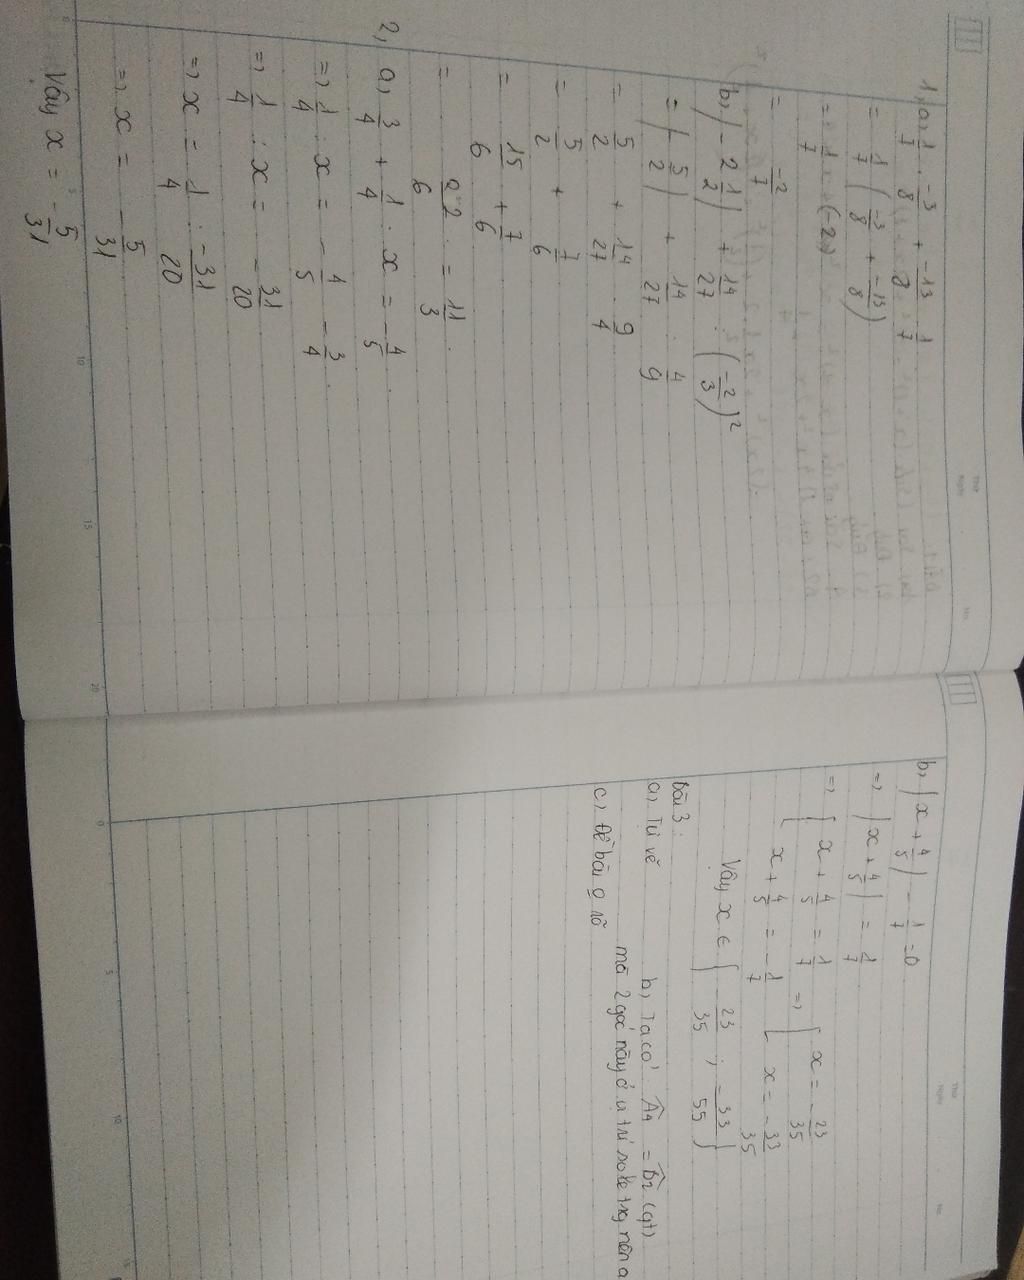 1, a, 1/7 . -3/8 + -13/8 . 1/7
= 1/7 (-3/8 + -13/8)
= 1/7 . (-2)
= -2/7
b, |-2 1/2| + 14/27 : (-2/3)²
= |-5/2| + 14/27 : 4/9
= 5/2 + 14/27 . 9/4
= 5/2 + 7/6
= 15/6 + 7/6
= 22/6 = 11/3.
2, a, 3/4 + 1/4 : x = -4/5.
=> 1/4 : x = -4/5 - 3/4.
=> 1/4 : x = -31/20
=> x = 1/4 : -31/20
=> x = -5/31
Vậy x = -5/31
b, |x + 4/5| - 1/7 = 0
=> |x + 4/5| = 1/7
=> [ x + 4/5 = 1/7 => [ x = -23/35
[ x + 4/5 = -1/7 [ x = -33/35
Vậy x ∈ { -23/35 ; -33/55 }
Bài 3 :
a, Tự vẽ b, Ta có : Â4 = B̂2 (gt)
mà 2 góc này ở vị trí so le trg nên a
c, Đề bài ko rõ